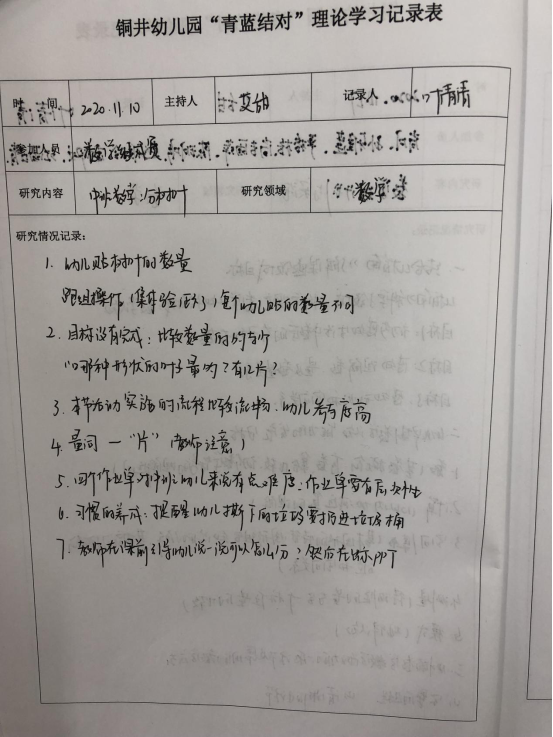 铜井幼儿园“青蓝结对”理论学习记录表
时 间 2020.11.10 主持人 艾甜 记录人
参加人员
研究内容 中班数学:分树叶 研究领域 数学
研究情况记录:
1. 幼儿贴树叶的数量
跟组操作(集体验证),每个幼儿贴的数量不同
2. 目标没有完成:比较数量的多少
“哪种形状的叶子最多?有几片?
3. 本节活动实施的流程比较流畅,幼儿参与度高
4. 量词 一“片”(教师注意)
5. 四个作业单对幼儿来说有点难度,作业单要有层次性
6. 习惯的养成:提醒幼儿撕下的垃圾要扔进垃圾桶
7. 教师在课前引导幼儿说一说可以怎么分?然后在出示PPT